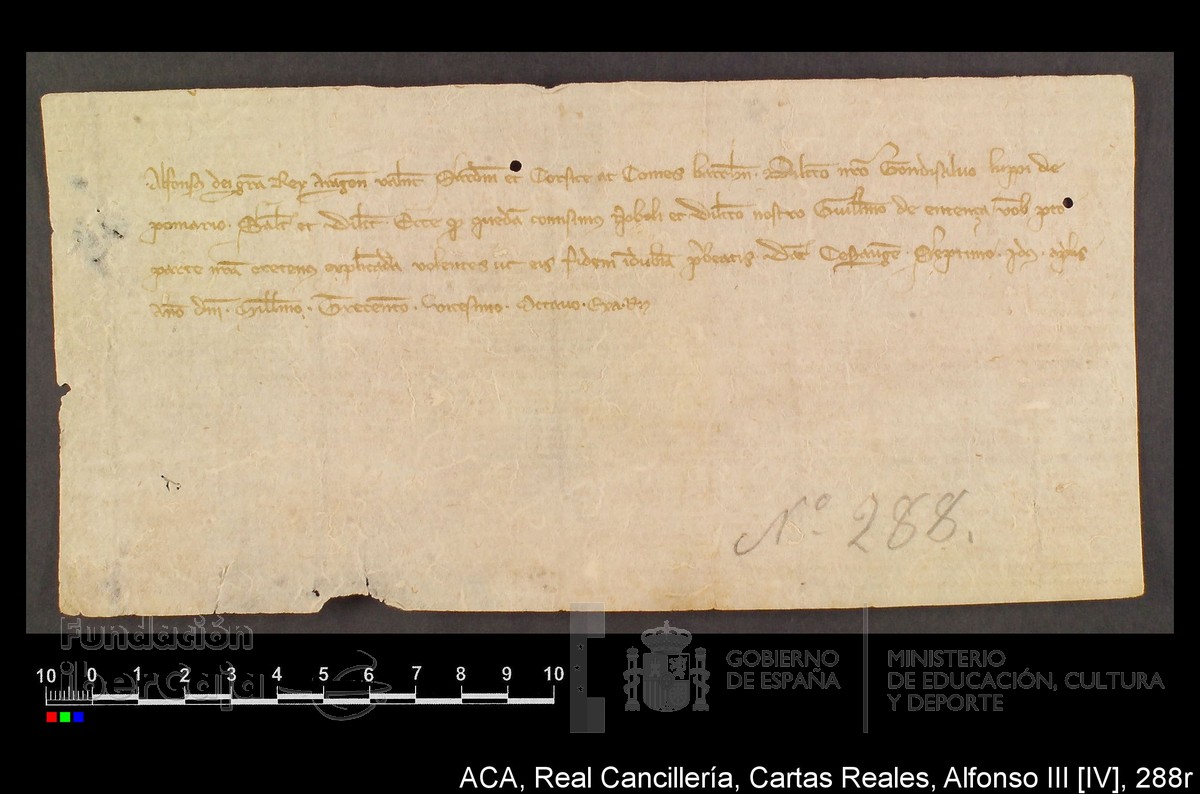 Alfonsus dei gra Rex Aragon Valent Sardin et Corsice ac Comes barchn. Dilecto nro Gondisalvo lupi de
pomario. Salt et dilect. Ecce quedam comisimus Nobili et dilecto nostro Guillmo de entença vob pro
parte nra explicanda volentes ut eis fidem indubiam prebeatis. Dat Cesarauguste Septimo
Anno dni. Millmo. Trecento. vicesimo. Octavo.
Nº 288.
Fundación
ibercaja
10 0 1 2 3 4 5 6 7 8 9 10
GOBIERNO
DE ESPAÑA
MINISTERIO
DE EDUCACIÓN, CULTURA
Y DEPORTE
ACA, Real Cancillería, Cartas Reales, Alfonso III [IV], 288r